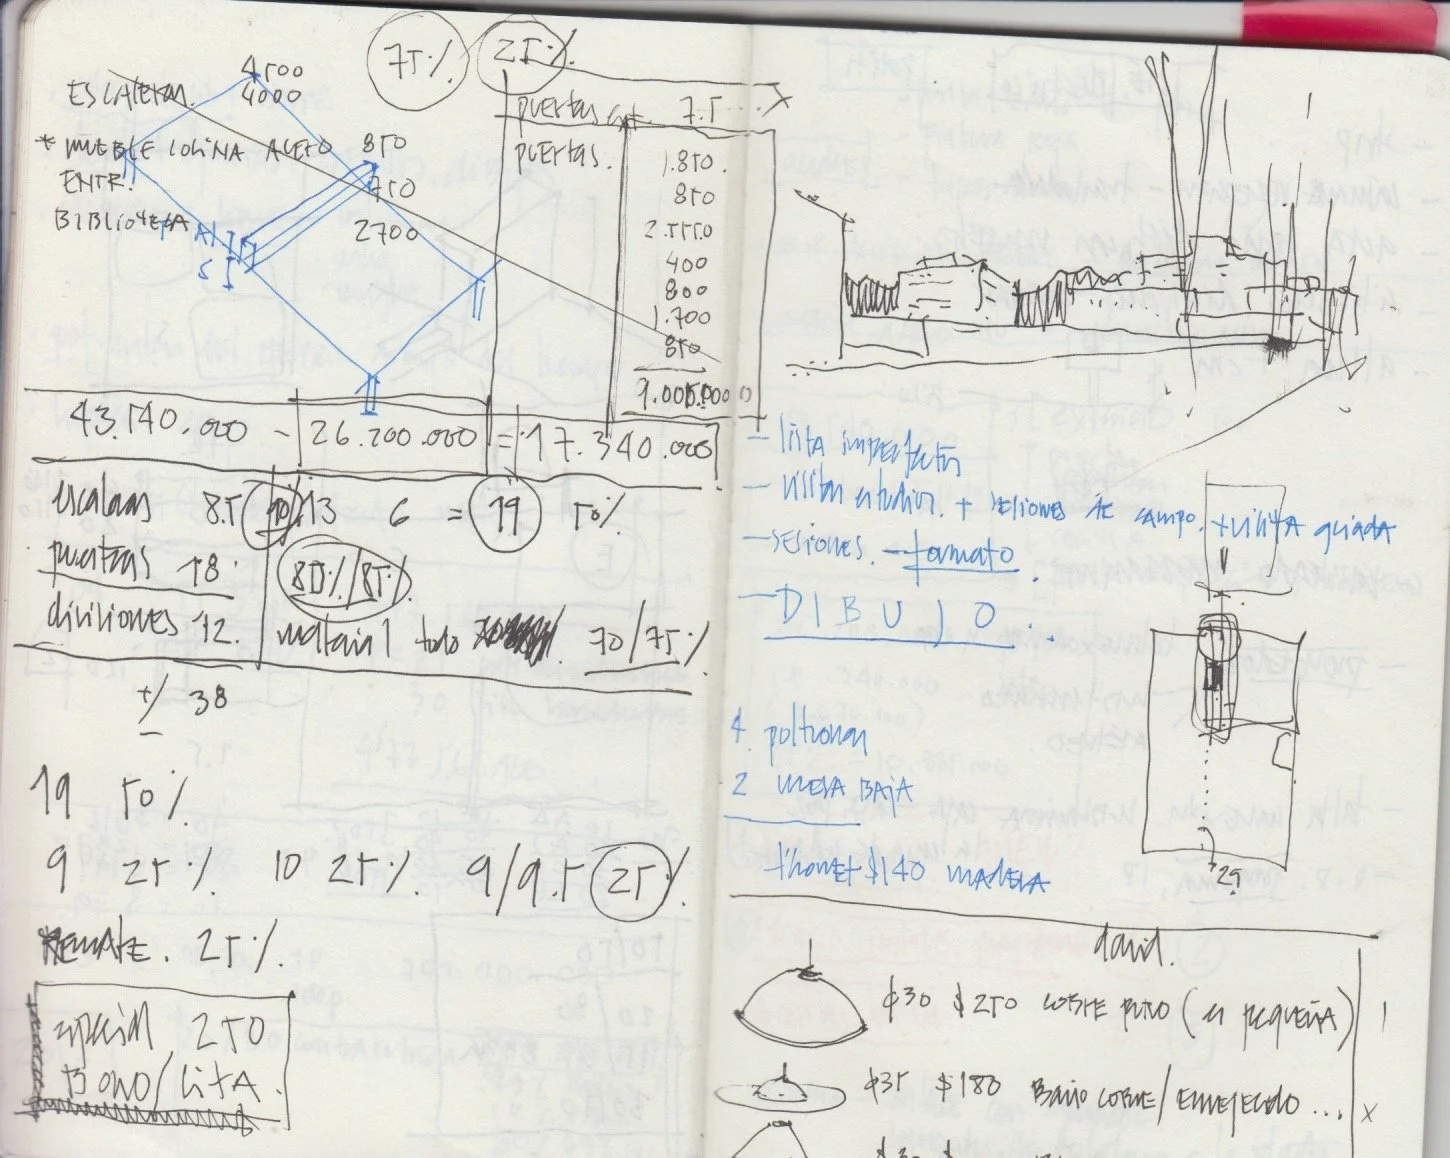 75% 25%
ESCALERA.
4500
4000
* MUEBLE COCINA ACERO 850
ENTR. 750
BIBLIOTECA 2700
S
puertas 7.5...
puertas.
1.850.
850
2.550
400
800
1.700
850
9.005.000
43.540.000 - 26.200.000 = 17.340.000
escaleras 8.5 10 13 6 = 19 50%
puertas 18.
80%/85%
divisiones 12. material todo 70/75%
+/- 38
19 50%
9 25% 10 25% 9/9.5 25%
REMATE. 25%
especial 250
BONO/LITA.
- lista imperfectos
- visitas estudios. + sesiones de campo. + visita guiada
- sesiones. - formato.
- DIBUJO...
4 poltronas
2 MESA BAJA
thonet $140 MADERA
29
david.
ϕ30 $250 COBRE PURO (es pequeña) 1
ϕ35 $180 Baño COBRE/ENVEJECIDO... x